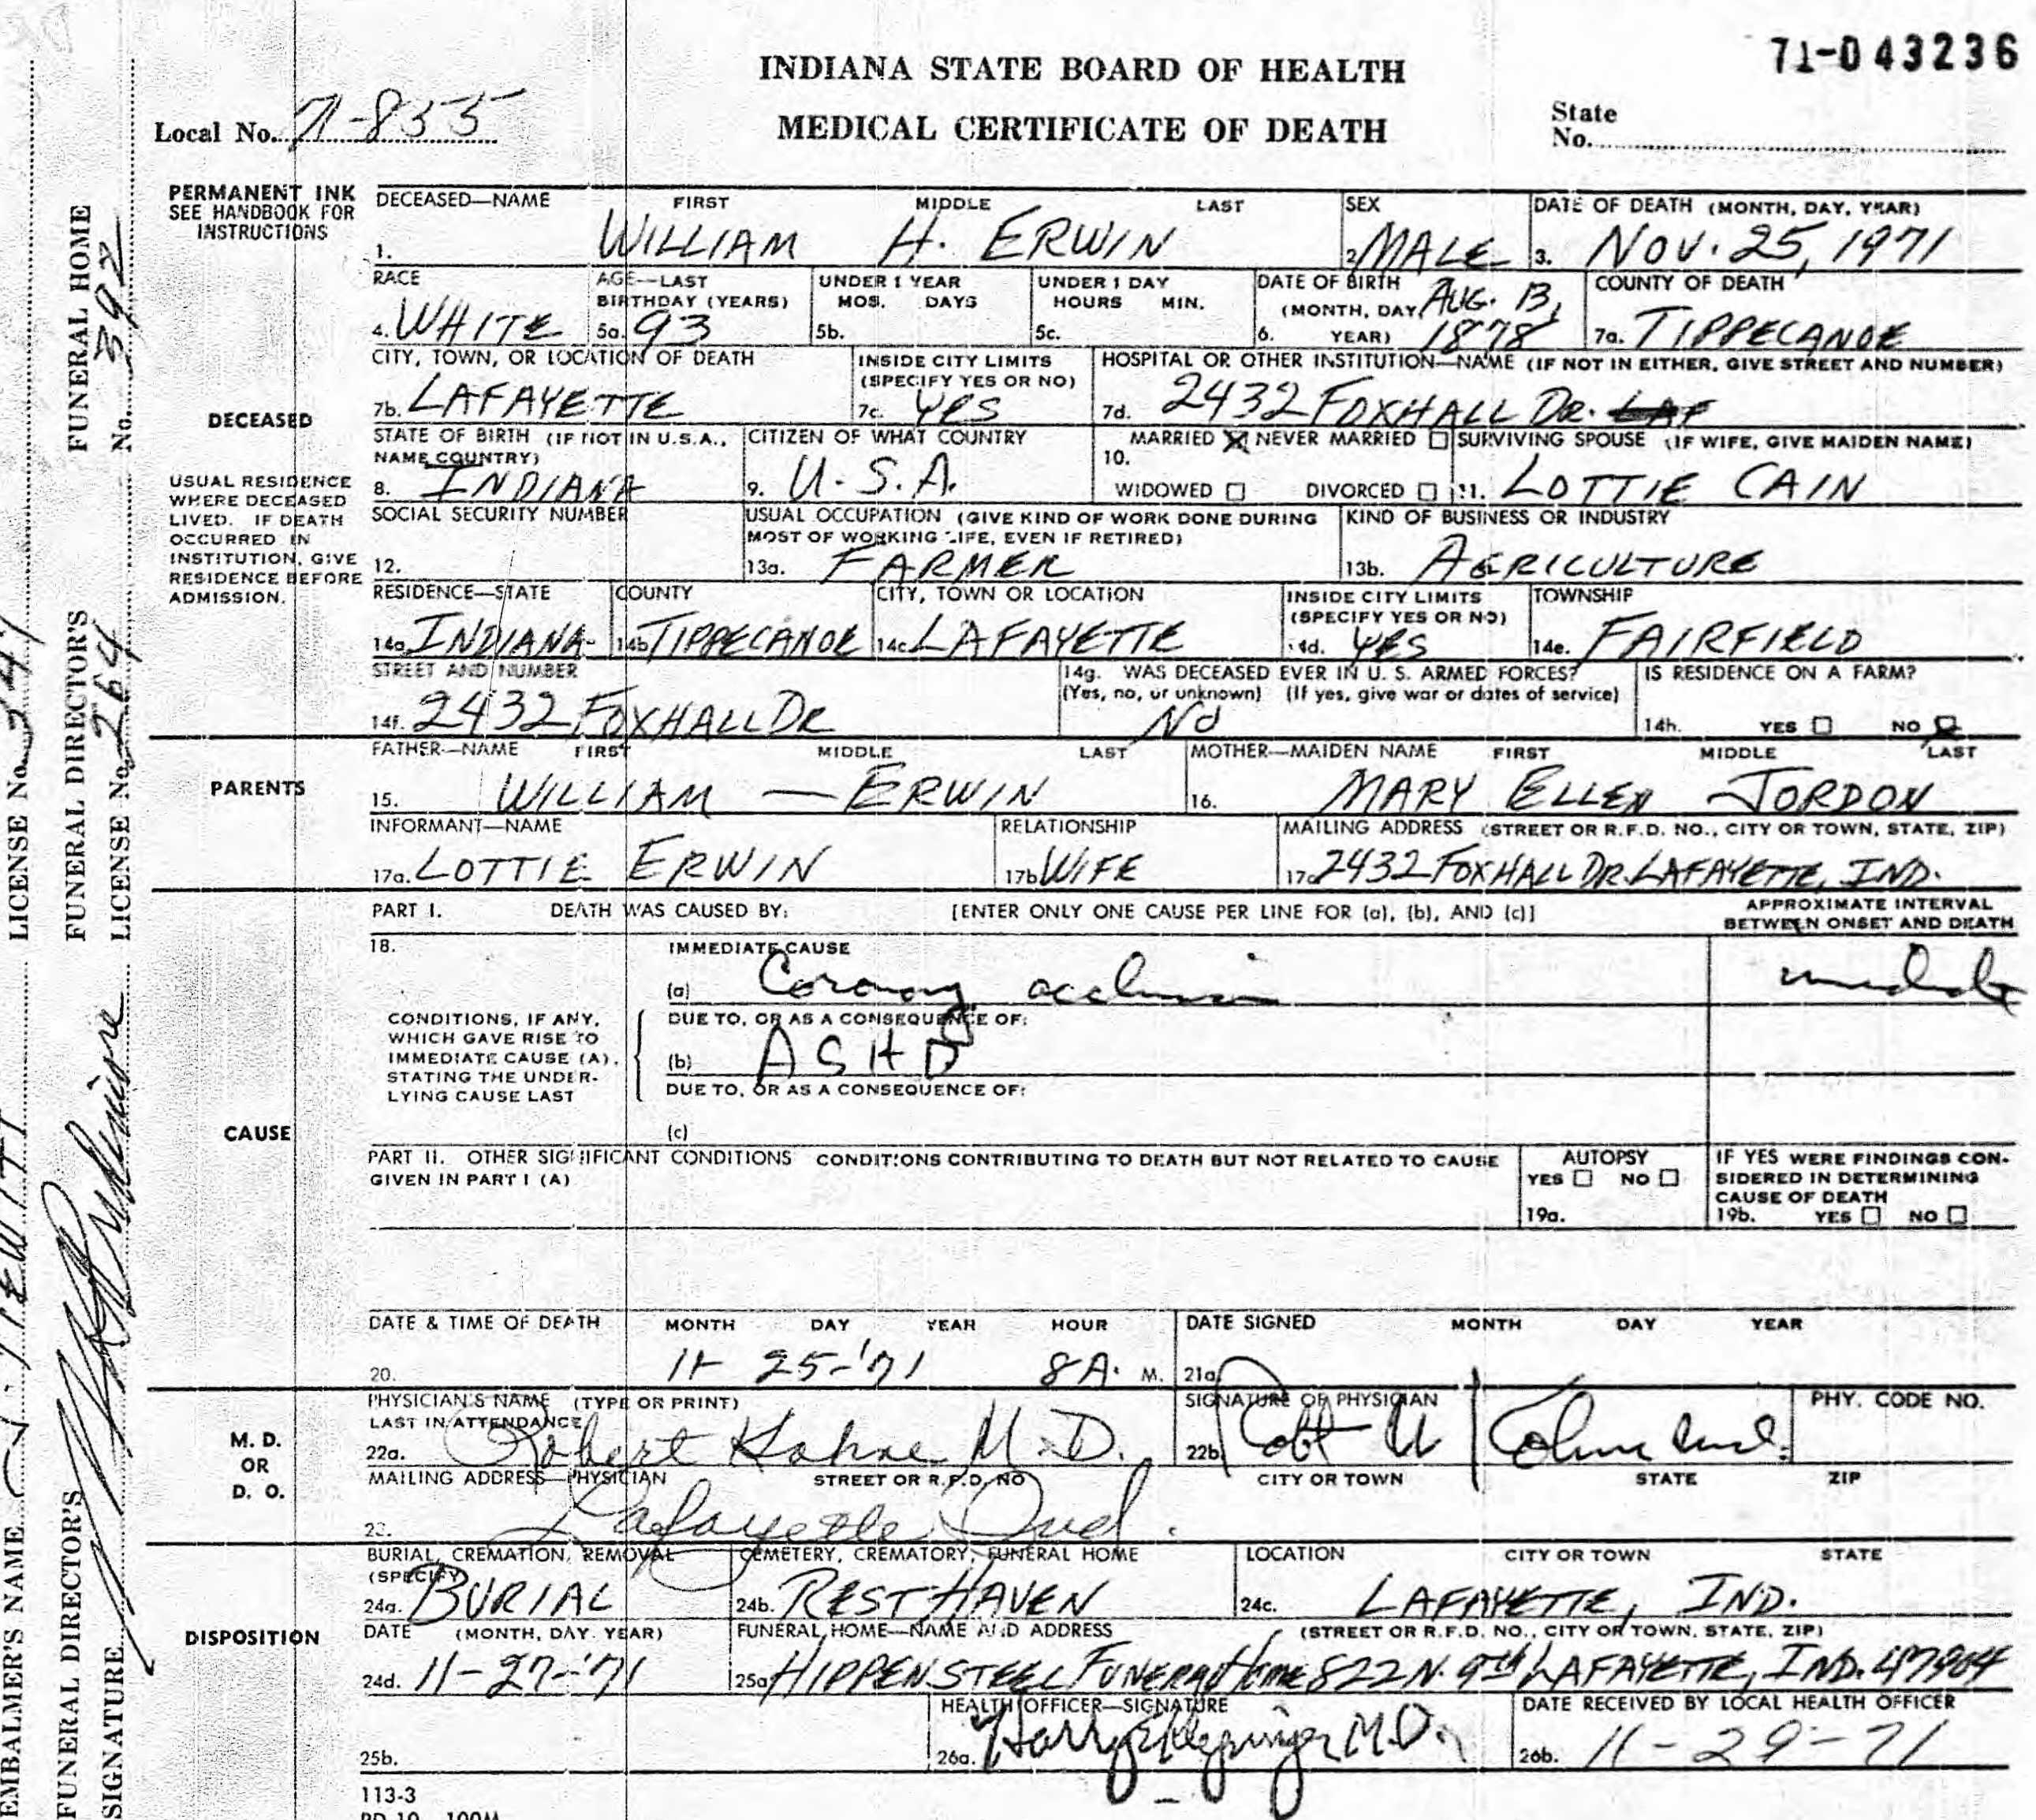 71-043236
INDIANA STATE BOARD OF HEALTH
MEDICAL CERTIFICATE OF DEATH
Local No. 71-835
State
No.
PERMANENT INK
SEE HANDBOOK FOR
INSTRUCTIONS
DECEASED—NAME FIRST MIDDLE LAST
1. WILLIAM H. ERWIN
SEX
2. MALE
DATE OF DEATH (MONTH, DAY, YEAR)
3. NOV. 25, 1971
RACE
4. WHITE
AGE—LAST
BIRTHDAY (YEARS)
5a. 93
UNDER 1 YEAR
MOS. DAYS
5b.
UNDER 1 DAY
HOURS MIN.
5c.
DATE OF BIRTH
(MONTH, DAY, AUG. 13,
6. YEAR) 1878
COUNTY OF DEATH
7a. TIPPECANOE
DECEASED
CITY, TOWN, OR LOCATION OF DEATH
7b. LAFAYETTE
INSIDE CITY LIMITS
(SPECIFY YES OR NO)
7c. YES
HOSPITAL OR OTHER INSTITUTION—NAME (IF NOT IN EITHER, GIVE STREET AND NUMBER)
7d. 2432 FOXHALL DR. LAF
USUAL RESIDENCE
WHERE DECEASED
LIVED. IF DEATH
OCCURRED IN
INSTITUTION, GIVE
RESIDENCE BEFORE
ADMISSION.
STATE OF BIRTH (IF NOT IN U.S.A.,
NAME COUNTRY)
8. INDIANA
CITIZEN OF WHAT COUNTRY
9. U.S.A.
MARRIED X NEVER MARRIED
10.
WIDOWED DIVORCED
SURVIVING SPOUSE (IF WIFE, GIVE MAIDEN NAME)
11. LOTTIE CAIN
SOCIAL SECURITY NUMBER
12.
USUAL OCCUPATION (GIVE KIND OF WORK DONE DURING
MOST OF WORKING LIFE, EVEN IF RETIRED)
13a. FARMER
KIND OF BUSINESS OR INDUSTRY
13b. AGRICULTURE
RESIDENCE—STATE
14a. INDIANA
COUNTY
14b. TIPPECANOE
CITY, TOWN OR LOCATION
14c. LAFAYETTE
INSIDE CITY LIMITS
(SPECIFY YES OR NO)
14d. YES
TOWNSHIP
14e. FAIRFIELD
STREET AND NUMBER
14f. 2432 FOXHALL DR
14g. WAS DECEASED EVER IN U. S. ARMED FORCES?
(Yes, no, or unknown) (If yes, give war or dates of service)
NO
IS RESIDENCE ON A FARM?
14h. YES NO
PARENTS
FATHER—NAME FIRST MIDDLE LAST
15. WILLIAM — ERWIN
MOTHER—MAIDEN NAME FIRST MIDDLE LAST
16. MARY ELLEN JORDON
INFORMANT—NAME
17a. LOTTIE ERWIN
RELATIONSHIP
17b. WIFE
MAILING ADDRESS (STREET OR R.F.D. NO., CITY OR TOWN, STATE, ZIP)
17c. 2432 FOXHALL DR. LAFAYETTE, IND.
PART I. DEATH WAS CAUSED BY: [ENTER ONLY ONE CAUSE PER LINE FOR (a), (b), AND (c)]
APPROXIMATE INTERVAL
BETWEEN ONSET AND DEATH
18.
IMMEDIATE CAUSE
(a) Coronary occlusion
CONDITIONS, IF ANY,
WHICH GAVE RISE TO
IMMEDIATE CAUSE (A),
STATING THE UNDER-
LYING CAUSE LAST
DUE TO, OR AS A CONSEQUENCE OF:
(b) ASHD
DUE TO, OR AS A CONSEQUENCE OF:
(c)
CAUSE
PART II. OTHER SIGNIFICANT CONDITIONS CONDITIONS CONTRIBUTING TO DEATH BUT NOT RELATED TO CAUSE
GIVEN IN PART I (A)
AUTOPSY
YES NO
19a.
IF YES WERE FINDINGS CON-
SIDERED IN DETERMINING
CAUSE OF DEATH
19b. YES NO
DATE & TIME OF DEATH MONTH DAY YEAR HOUR
20. 11-25-'71 8A. M.
DATE SIGNED MONTH DAY YEAR
21a.
M. D.
OR
D. O.
PHYSICIAN'S NAME (TYPE OR PRINT)
LAST IN ATTENDANCE
22a. Robert Kohne M.D.
SIGNATURE OF PHYSICIAN
22b.
PHY. CODE NO.
MAILING ADDRESS—PHYSICIAN STREET OR R.F.D. NO CITY OR TOWN STATE ZIP
23. Lafayette Ind.
DISPOSITION
BURIAL, CREMATION, REMOVAL
(SPECIFY)
24a. BURIAL
CEMETERY, CREMATORY, FUNERAL HOME
24b. REST HAVEN
LOCATION CITY OR TOWN STATE
24c. LAFAYETTE, IND.
DATE (MONTH, DAY, YEAR)
24d. 11-27-'71
FUNERAL HOME—NAME AND ADDRESS (STREET OR R.F.D. NO., CITY OR TOWN, STATE, ZIP)
25a. HIPPENSTEEL FUNERAL HOME 822 N. 9TH LAFAYETTE, IND. 47904
25b.
HEALTH OFFICER—SIGNATURE
26a. Harry M.D.
DATE RECEIVED BY LOCAL HEALTH OFFICER
26b. 11-29-71
113-3
EMBALMER'S NAME LICENSE No.
FUNERAL DIRECTOR'S SIGNATURE
FUNERAL DIRECTOR'S LICENSE No. 264
FUNERAL HOME No. 392